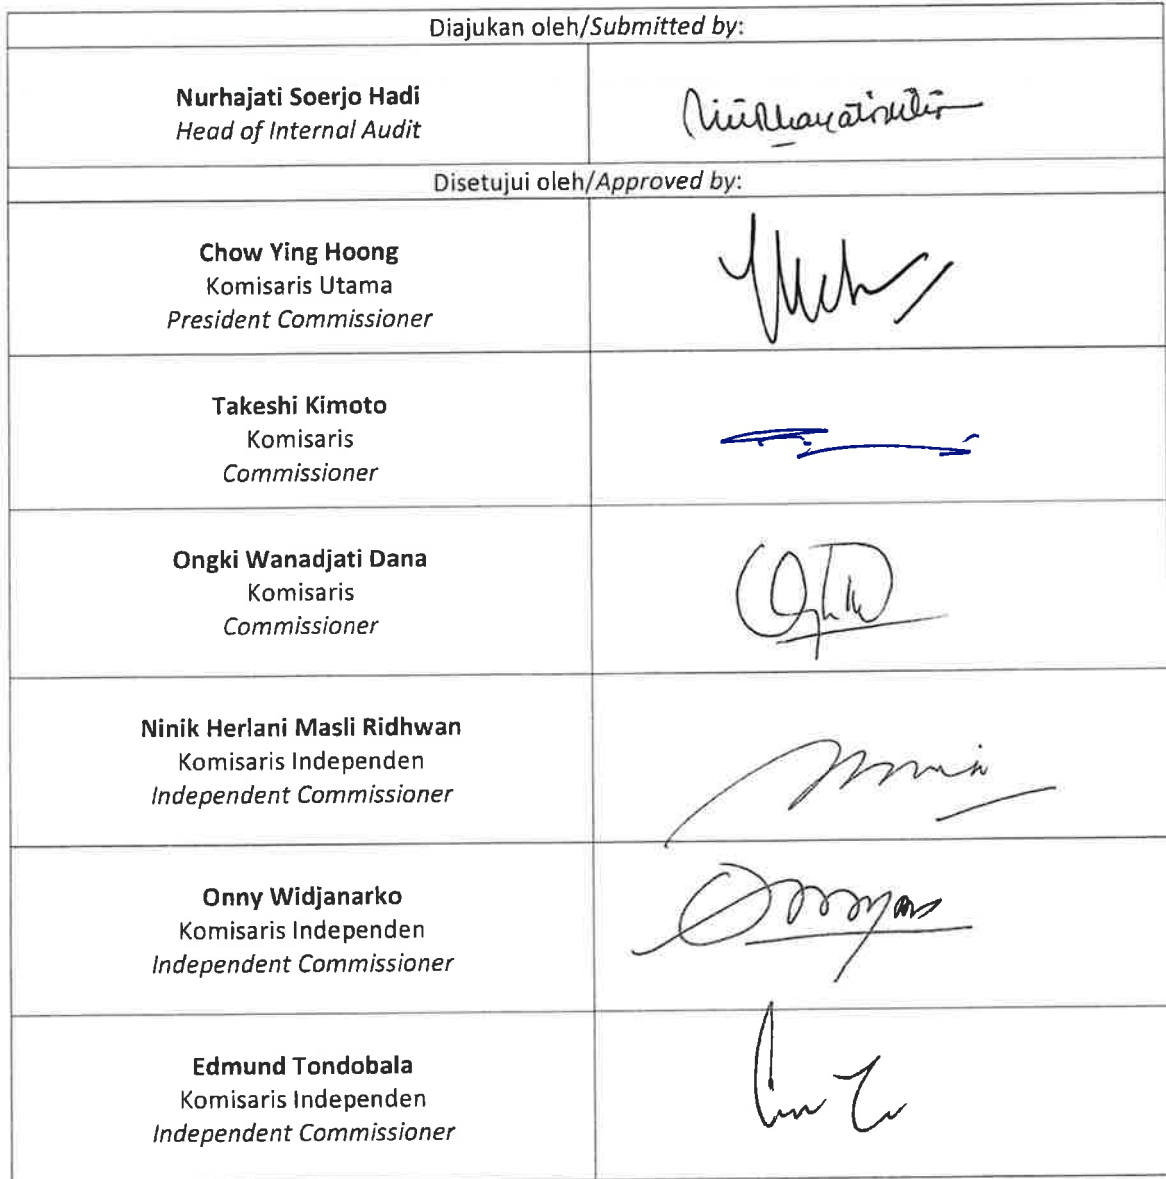 Diajukan oleh/Submitted by:
Nurhajati Soerjo Hadi
Head of Internal Audit
Disetujui oleh/Approved by:
Chow Ying Hoong
Komisaris Utama
President Commissioner
Takeshi Kimoto
Komisaris
Commissioner
Ongki Wanadjati Dana
Komisaris
Commissioner
Ninik Herlani Masli Ridhwan
Komisaris Independen
Independent Commissioner
Onny Widjanarko
Komisaris Independen
Independent Commissioner
Edmund Tondobala
Komisaris Independen
Independent Commissioner